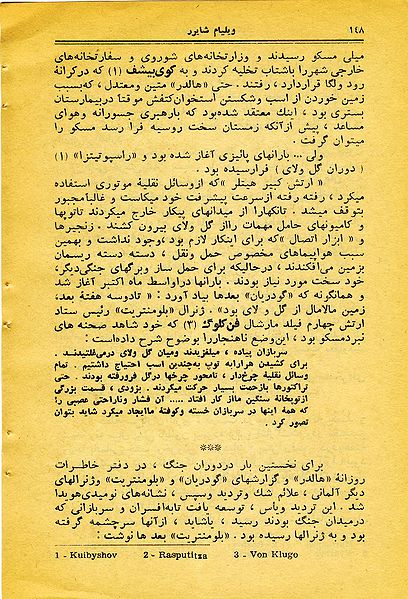 ۱۴۸ ویلیام شایرر
میلی مسکو رسیدند و وزارتخانه‌های شوروی و سفارتخانه‌های
خارجی شهررا باشتاب تخلیه کردند و به کوی‌بیشف (۱) که درکرانهٔ
رود ولگا قراردارد ، رفتند . حتی «هالدر» متین ومعتدل ، که‌بسبب
زمین خوردن از اسب وشکستن استخوان‌کتفش موقتاً دربیمارستان
بستری بود ، اینک معتقد شده‌بود که بارهبری جسورانه وهوای
مساعد ، پیش ازآنکه زمستان سخت روسیه فرا رسد مسکو را
میتوان گرفت .
ولی ... بارانهای پائیزی آغاز شده بود و «راسپوتیتزا» (۱)
( دوران گل ولای ) فرارسیده بود .
« ارتش کبیر هیتلر » که ازوسائل نقلیهٔ موتوری استفاده
میکرد ، رفته رفته ازسرعت پیشرفت خود میکاست و غالباً مجبور
بتوقف میشد . تانکهارا از میدانهای پیکار خارج میکردند تاتوپها
و کامیونهای حامل مهمات رااز گل ولای بیرون کشند . زنجیرها
و « ابزار اتصال »که برای اینکار لازم بود ،وجود نداشت و بهمین
سبب هواپیماهای مخصوص حمل ونقل ، دسته دسته ریسمان
بزمین می‌افکندند ، درحالیکه برای حمل ساز وبرگهای جنگی‌دیگر،
خود سخت مورد نیاز بودند . بارانها درواسط ماه اکتبر آغاز شد
و همانگونه که «گودریان» بعدها بیاد آورد : « تادوسه هفتهٔ بعد،
زمین مالامال از گل و لای بود» . ژنرال «بلومنتریت» رئیس ستاد
ارتش چهارم فیلد مارشال فن‌کلوگ (۳) که خود شاهد صحنه های
نبردمسکو بود ، این‌وضع ناهنجاررا بوضوح شرح داده‌است :
سربازان پیاده ، میلغزیدند ومیان گل ولای درمی‌غلتیدنـد .
برای کشیدن هرارابه توپ به‌چندین اسب احتیاج داشتیم . تمام
وسائل نقلیهٔ چرخ‌دار ، تامحور چرخها درگل فرورفته بودند . حتی
تراکتورها بازحمت بسیار حرکت میکردند . بزودی ، قسمت بزرگی
ازتوپخانهٔ سنگین مااز کار افتاد ..... آن فشار وناراحتی عصبی را
که همهٔ اینها در سربازان خسته وکوفتهٔ ماایجاد میکرد شاید بتوان
تصور کرد .
***
برای نخستین بار دردوران جنگ ، در دفتر خاطـرات
روزانهٔ «هالدر» و گزارشهای «گودریان» و «بلومنتریت» وژنرالهای
دیگر آلمانی ، علائم شک وتردید وسپس ، نشانه‌های نومیدی‌هویدا
شد . این تردید ویأس ، توسعه یافت تابه‌افسران و سربازانی که
درمیدان جنگ بودند رسید ، یاشاید ، ازآنها سرچشمه گرفته
بود و به ژنرالها رسیده بود . «بلومنتریت» بعد ها نوشت :
1 - Kuibyshov 2 - Rasputitza 3 - Von Klugo